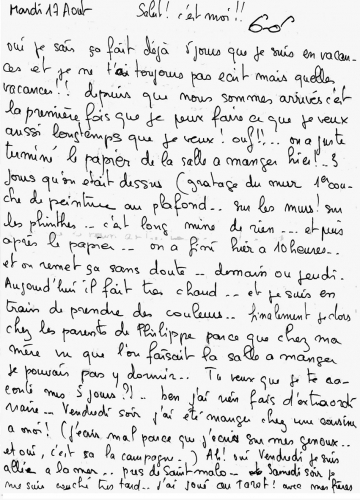 Mardi 17 Aout
Salut! c'est moi!!
oui je sais ça fait déjà 5 jours que je suis en vacan-
ces et je ne t'ai toujours pas ecrit mais quelles
vacances!! depuis que nous sommes arrivés c'est
la première fois que je peux faire ce que je veux
aussi longtemps que je veux! ouf!!... on a juste
terminé le papier de la salle a manger hier!.. 3
jours qu'on était dessus (gratage du mur 1e cou-
che de peinture au plafond.. sur les murs! sur
les plinthes... c'est long mine de rien... et puis
après le papier... on a fini hier a 10 heures..
et on remet ça sans doute.. demain ou jeudi.
Aujourd'hui il fait très chaud... et je suis en
train de prendre des couleurs.. finalement je dors
chez les parents de Philippe parce que chez ma
mère vu que l'on faisait la salle a manger
je pouvais pas y dormir.. Tu veux que je te ra-
conte mes 5 jours?!.. ben j'ai rien fais d'extraordi
naire... Vendredi soir j'ai été manger chez une cousine
a moi! (j'écris mal parce que j'écris sur mes genoux..
et oui, c'est sa la campagne..) Ah! oui Vendredi je suis
allée a la mer... près de Saint malo.. Samedi soir je
me suis couché très tard.. j'ai joué au tarot! avec mes frères